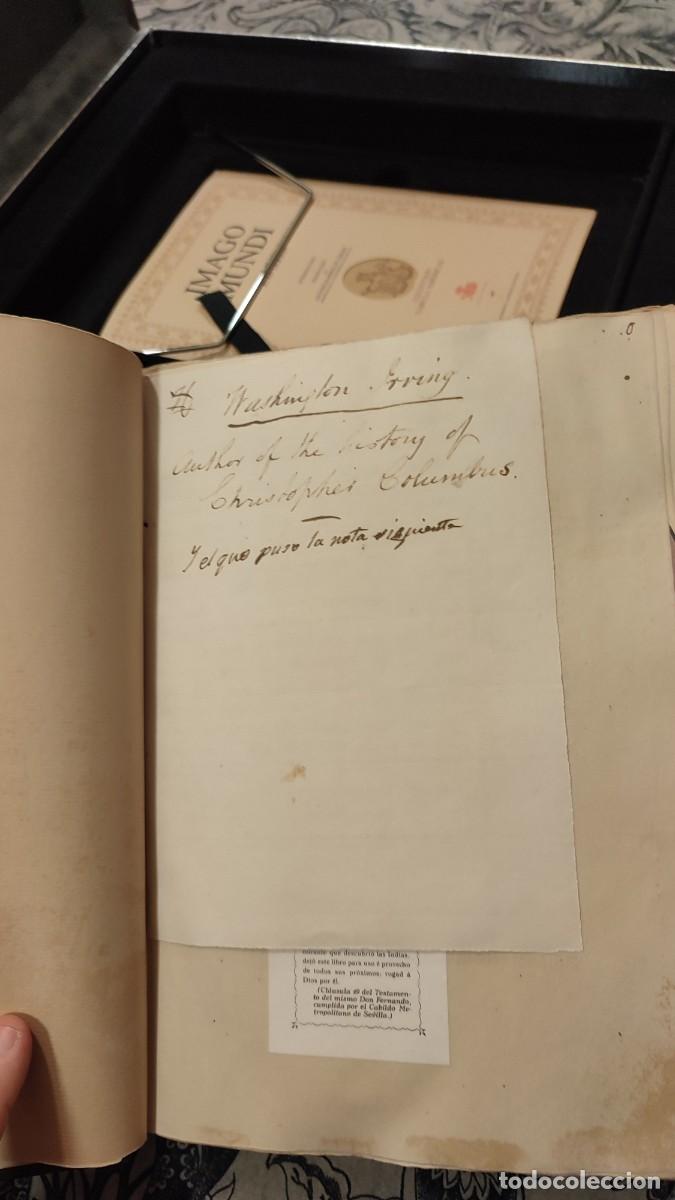 IMAGO
MUNDI
Washington Irving.
Author of the history of
Christopher Columbus.
Y el que puso la nota siguiente
mirante que descubrió las Indias,
dejó este libro para uso é provecho
de todos sus próximos; rogad á
Dios por él.
(Cláusula 49 del Testamen-
to del mismo Don Fernando,
cumplida por el Cabildo Me-
tropolitano de Sevilla.)
todocoleccion